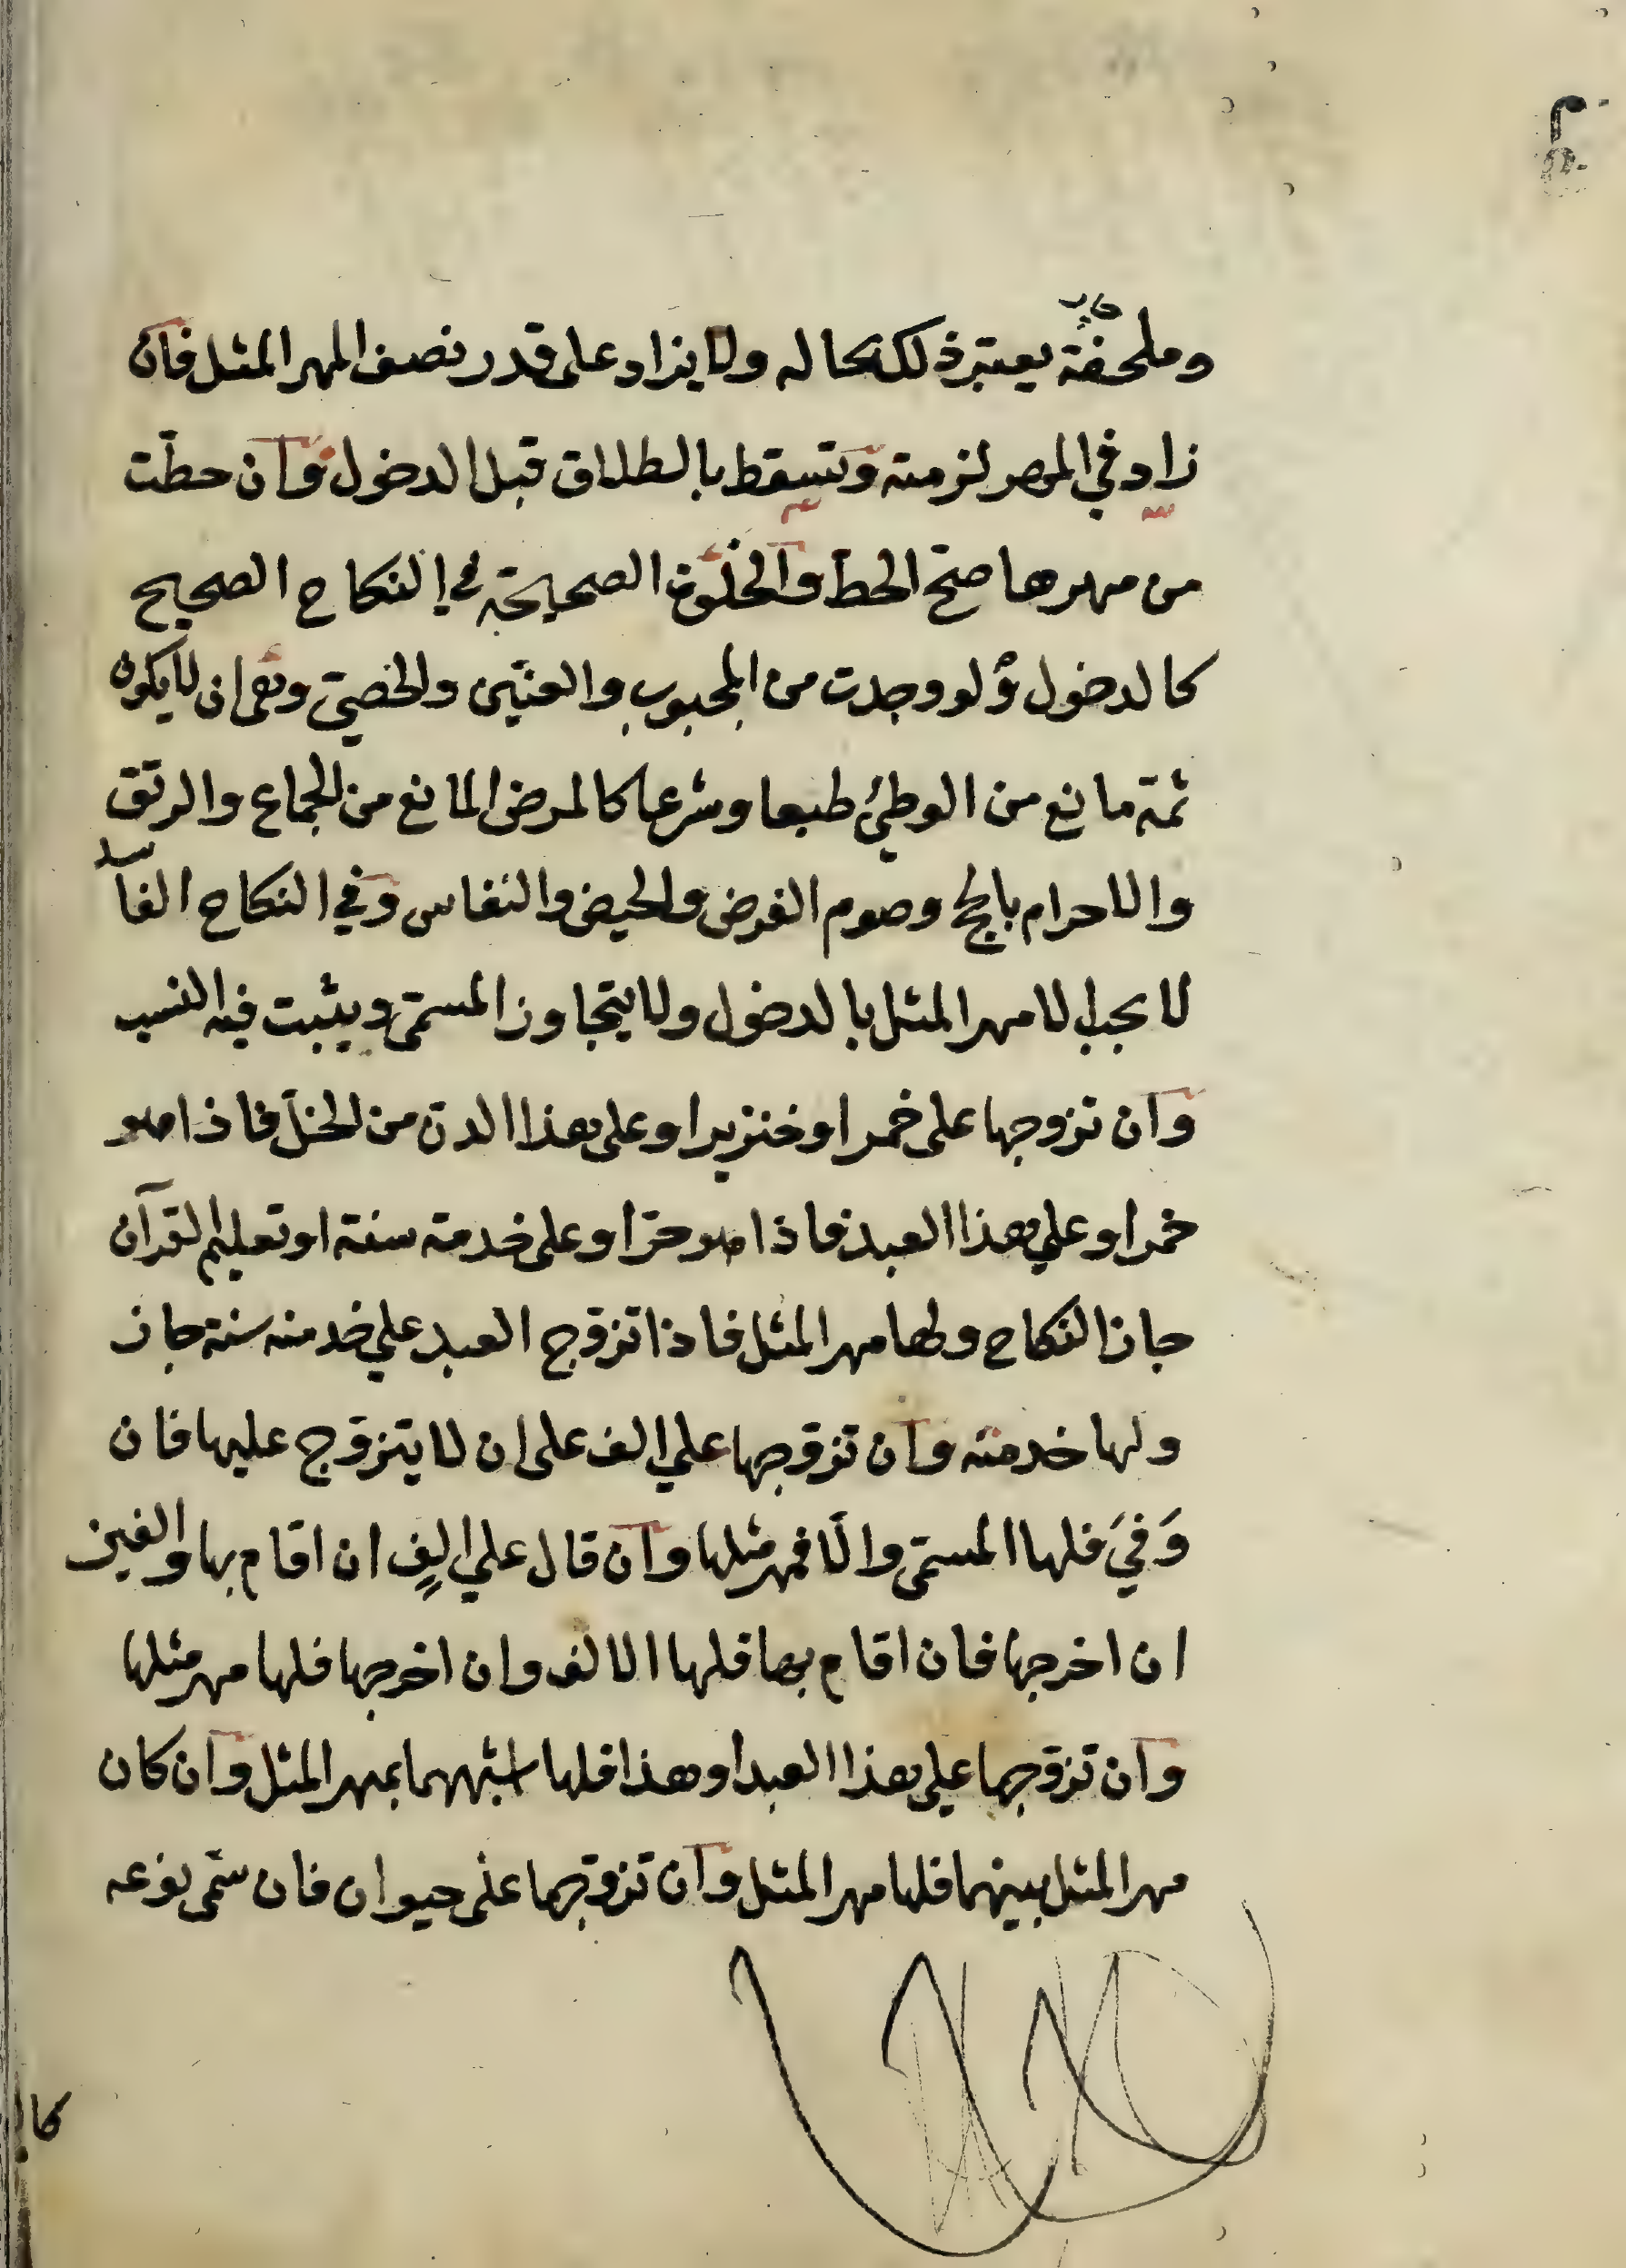 وملحفة يعتبر ذلك بحاله ولا يزاد على قدر نصف المهر المثل فان
زاد في المهر لزمته وتسقط بالطلاق قبل الدخول وان حطّت
من مهرها صحّ الحطّ والخلوة الصحيحة في النكاح الصحيح
كالدخول ولو وجدت من المجبوب والعنّين والخصيّ وهي ان لا يكون
ثمة مانع من الوطئ طبعا وشرعا كالمرض المانع من الجماع والرتق
والاحرام بالحج وصوم الفرض والحيض والنفاس وفي النكاح الفاسد
لا يجب الا مهر المثل بالدخول ولا يتجاوز المسمّى ويثبت فيه النسب
وان تزوجها على خمر او خنزير او على هذا الدن من الخلّ فاذا هو
خمر او علي هذا العبد فاذا هو حرّ او على خدمة سنة او تعليم القرآن
جاز النكاح ولها مهر المثل فاذا تزوّج العبد علي خدمته سنة جاز
ولها خدمته وان تزوّجها علي الف على ان لا يتزوّج عليها فان
وَفيَ فلها المسمّى والّا فمهر مثلها وان قال علي الفٍ ان اقام بها والفين
ان اخرجها فان اقام بها فلها الالف وان اخرجها فلها مهر مثلها
وان تزوّجها على هذا العبد او هذا فلها اشبههما بمهر المثل وان كان
مهر المثل بينهما فلها مهر المثل وان تزوّجها على حيوان فان سمّى نوعه